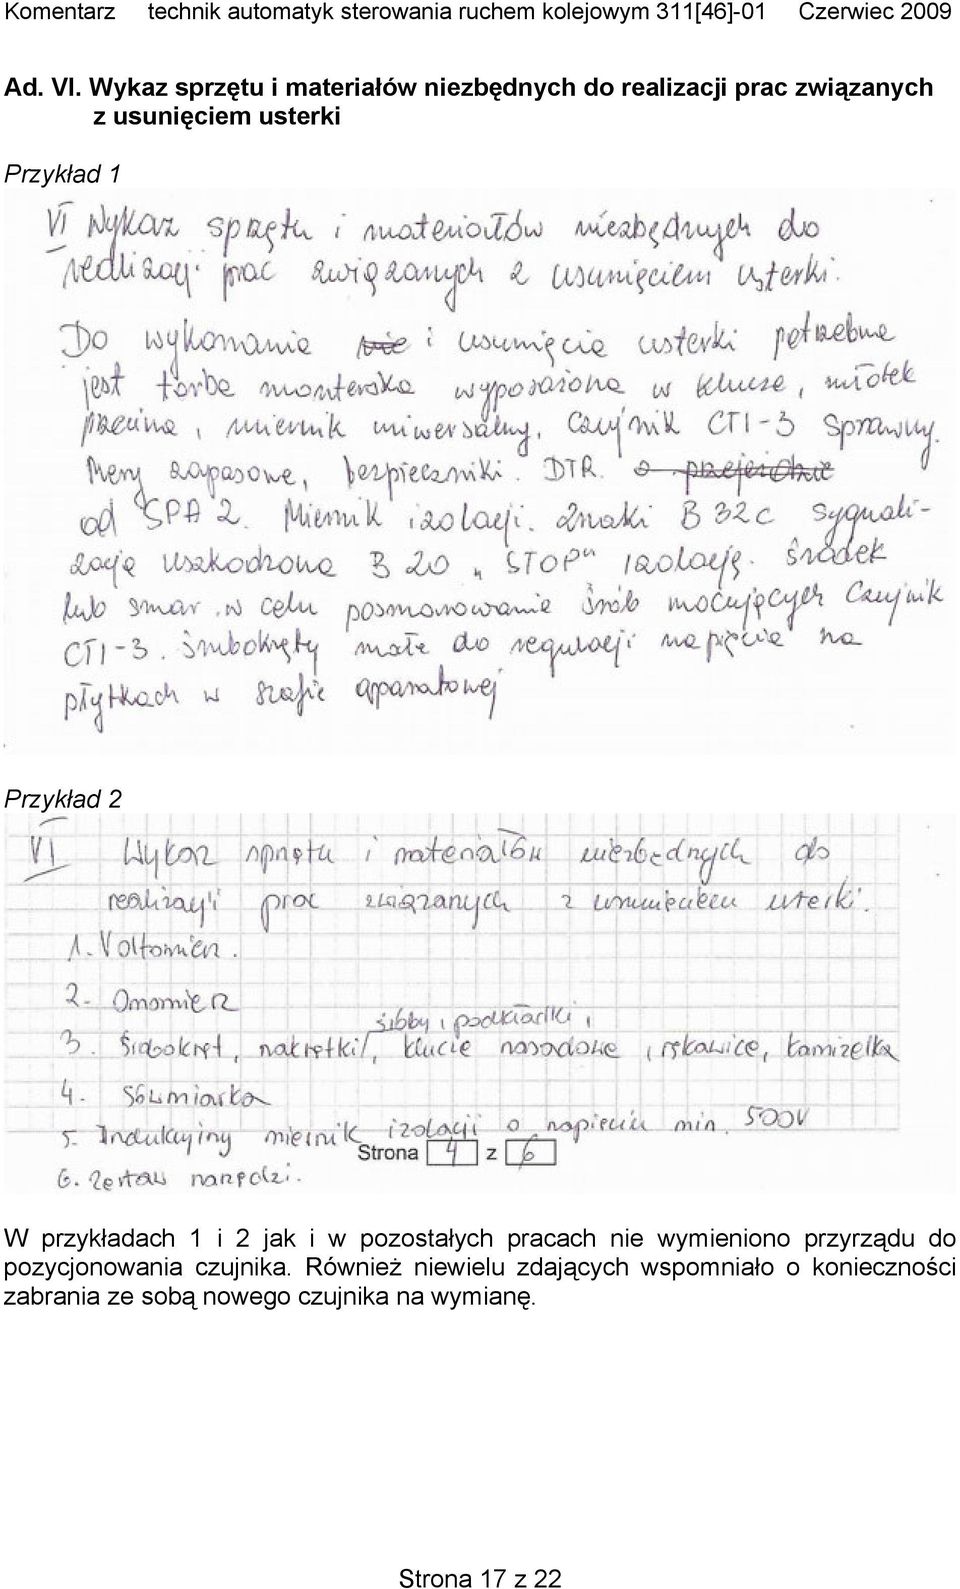 Komentarz technik automatyk sterowania ruchem kolejowym 311[46]-01 Czerwiec 2009
Ad. VI. Wykaz sprzętu i materiałów niezbędnych do realizacji prac związanych
z usunięciem usterki
Przykład 1
VI Wykaz sprzętu i materiałów niezbędnych do
realizacji prac związanych z usunięciem usterki.
Do wykonania nie i usunięcia usterki potrzebna
jest torba monterska wyposażona w klucze, młotek
przecina, miernik uniwersalny, Czujnik CTI-3 Sprawny.
Mery zapasowe, bezpieczniki. DTR. o przejeździe
od SPA 2. Miernik izolacji. Znaki B 32c sygnali-
zacja uszkodzona B 20 „STOP" izolacją. środek
lub smar w celu posmarowania śrób mocujących Czujnik
CTI-3. śrubokręty małe do regulacji napięcia na
płytkach w szafie aparatowej
Przykład 2
VI Wykaz sprzętu i materiałów niezbędnych do
realizacji prac związanych z usunięciem usterki.
1. Voltomierz.
2. Omomierz
śróby, podkładki,
3. Śrobokręt, nakrętki, klucze nasadowe, rękawice, kamizelka
4. Sówmiarka
5. Indukcyjny miernik izolacji o napięciu min. 500V
Strona 4 z 6
6. Zestaw narzędzi.
W przykładach 1 i 2 jak i w pozostałych pracach nie wymieniono przyrządu do
pozycjonowania czujnika. Również niewielu zdających wspomniało o konieczności
zabrania ze sobą nowego czujnika na wymianę.
Strona 17 z 22